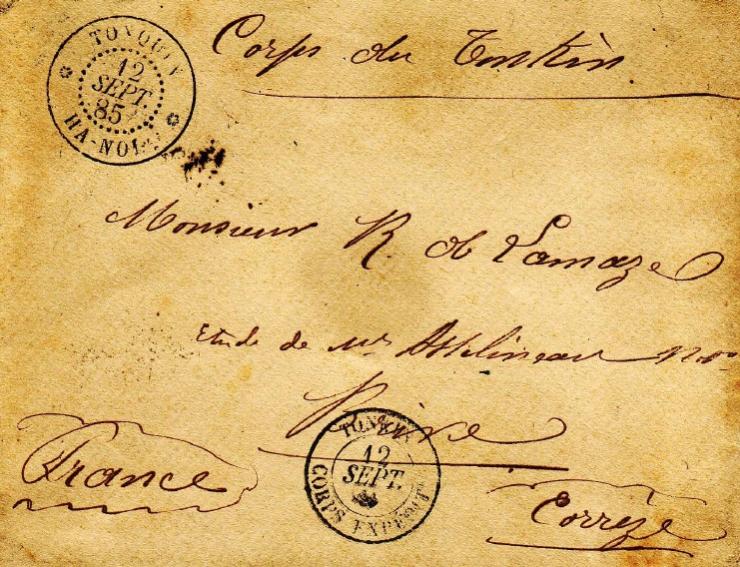 TONQUIN
12
SEPT.
85
HA-NOI
Corps du Tonkin
Monsieur R. de Lamaze
Etude de Me
France
TONKIN
12
SEPT.
CORPS EXPEDIT
Corrèze